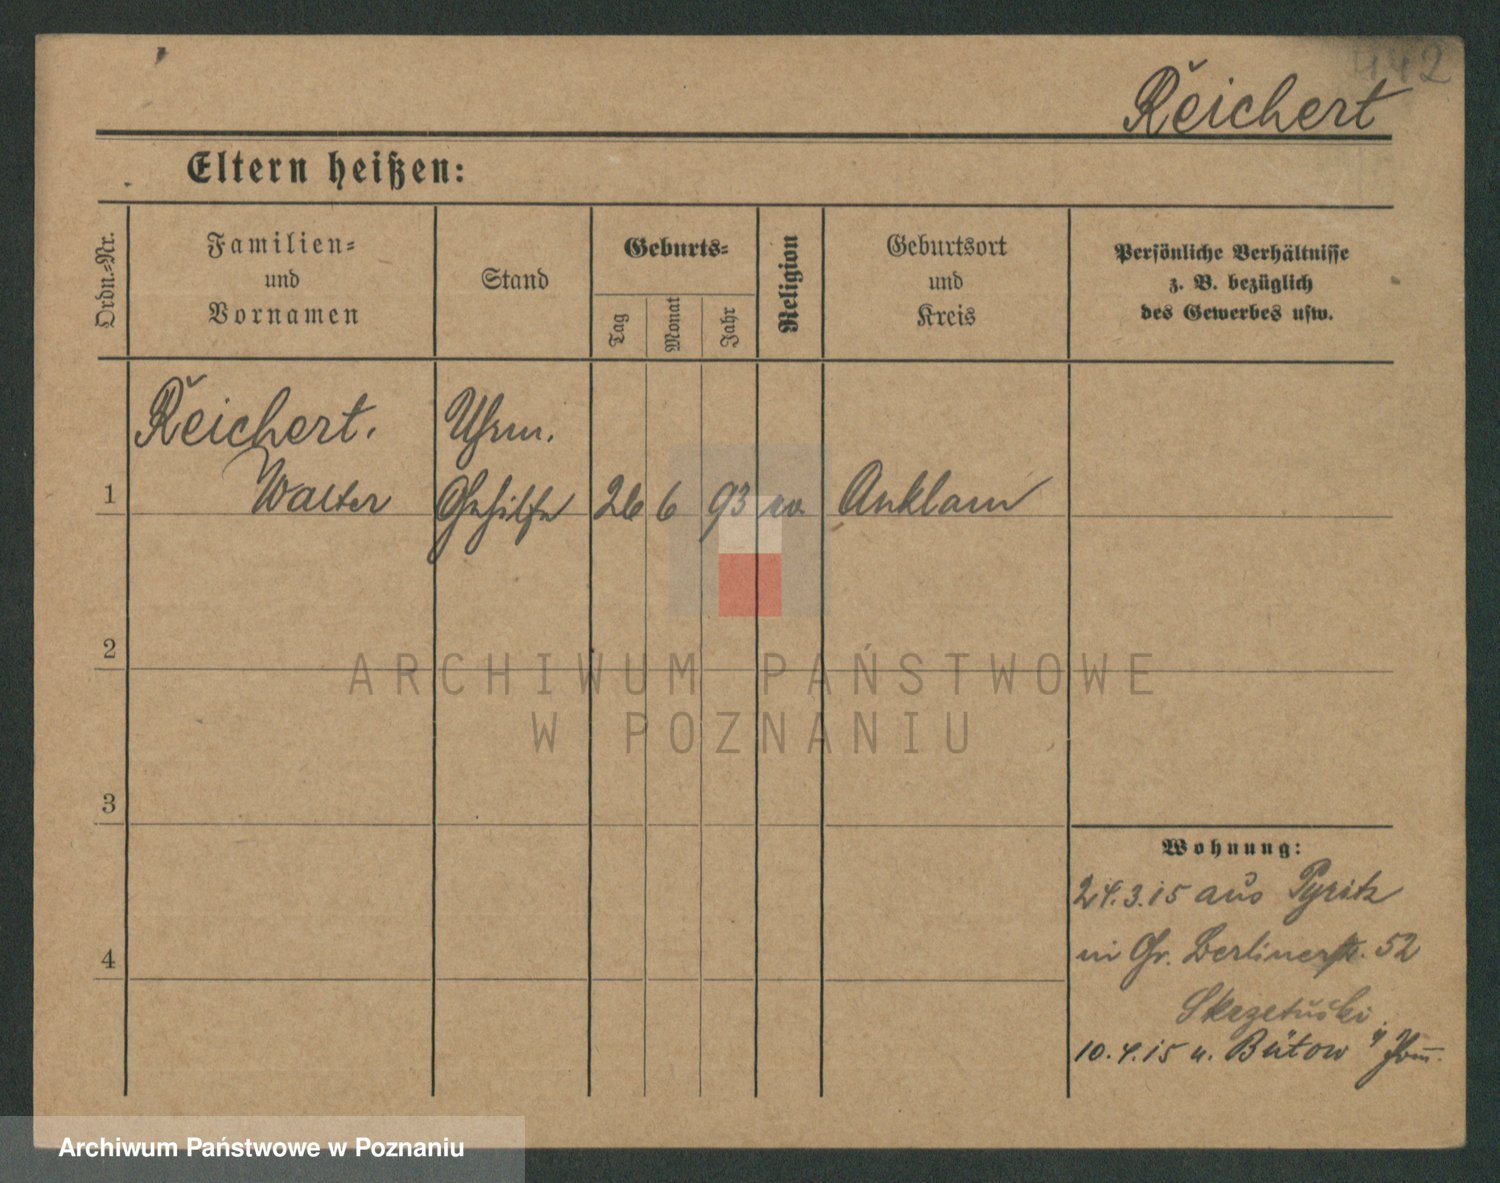 442
Reichert
Eltern heißen:
Ordn.-Nr.
Familien-
und
Vornamen
Stand
Geburts-
Tag
Monat
Jahr
Religion
Geburtsort
und
Kreis
Persönliche Verhältnisse
z. B. bezüglich
des Gewerbes usw.
Reichert. Uhrm.
1 Walter Gehilfe 26 6 93 ev. Anklam
2
ARCHIWUM PAŃSTWOWE
W POZNANIU
3
Wohnung:
24.3.15 aus Pyritz
in Gr. Berlinerstr. 52
4
Skrzetuski
10.4.15 n. Bütow i/ Pom.
Archiwum Państwowe w Poznaniu